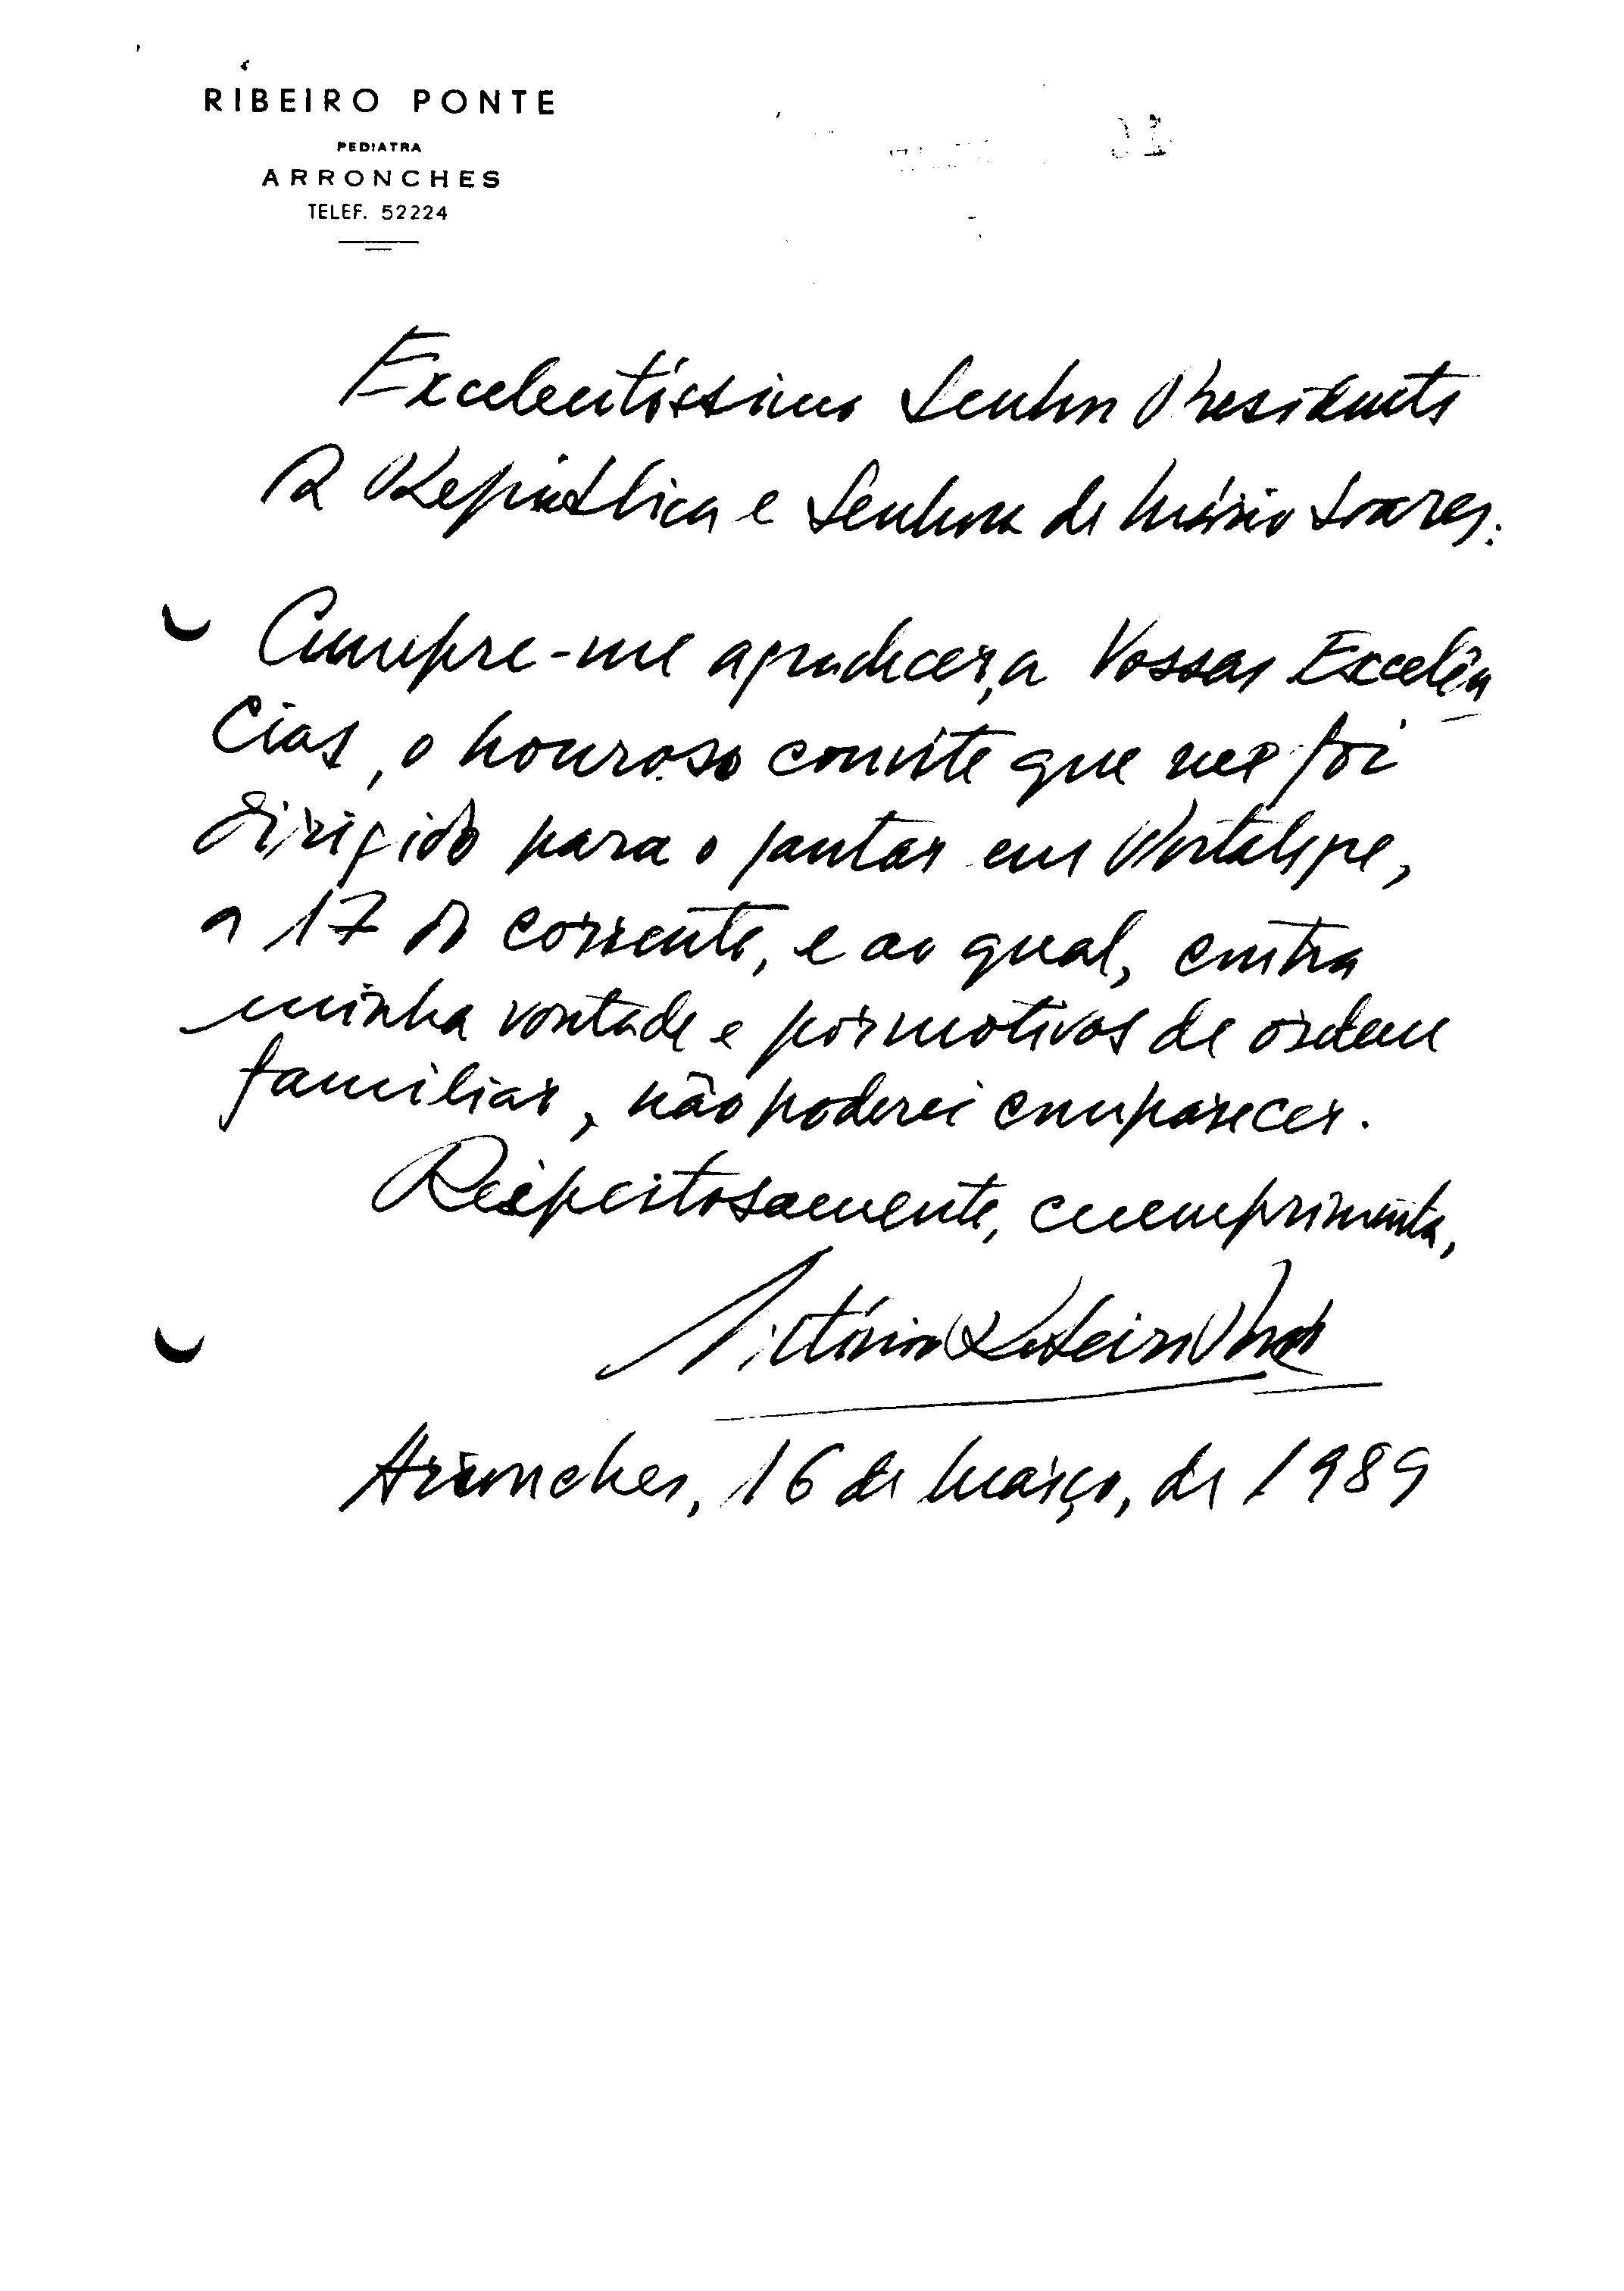 RIBEIRO PONTE
PEDIATRA
ARRONCHES
TELEF. 52224
Excelentíssimo Senhor Presidente
da República e Senhora de Mário Soares:
Cumpre-me agradecer, a Vossas Excelên
cias, o honroso convite que me foi
dirigido para o jantar em Portalegre,
a 17 do corrente, e ao qual, contra
minha vontade e por motivos de ordem
familiar, não poderei comparecer.
Respeitosamente, cumprimenta,
Victórino Ribeiro Ponte
Arronches, 16 de Março, de 1989